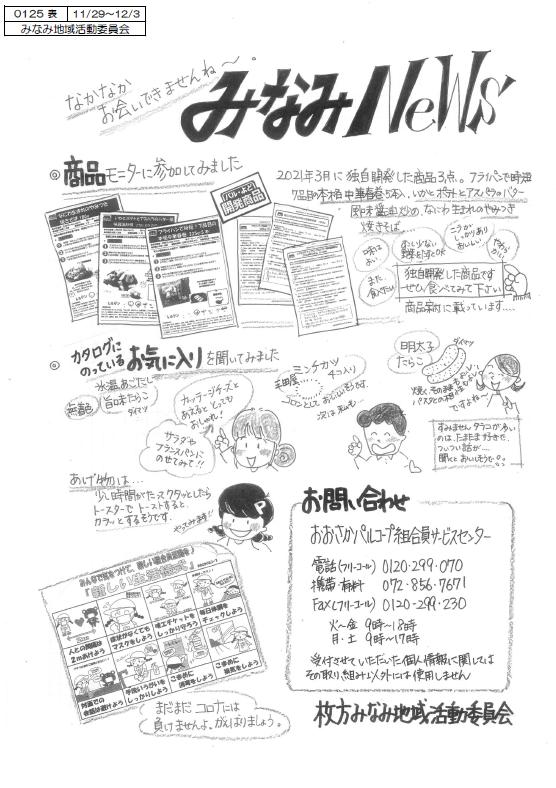 0125 表 11/29～12/3
みなみ地域活動委員会
なかなか
お会いできませんね～
みなみNeWs
◎商品モニターに参加してみました
「パル・よど」
開発商品
2021年3月に独自開発した商品3点。フライパンで時短
7品目の本格中華春巻5本入、いかとポテトとアスパラのバター
風味醤油炒め、なにわ生まれのやみつき
焼きそば…
味は
よい
また
食べたい
ニラが
しっかりあり
おいしい
独自開発した商品です
ぜひ食べてみて下さい
商品案内に載っています….
◎カタログに
のっているお気に入りを聞いてみました
氷温あごだし
旨口味たらこ
無着色
ダイマツ
カッテージチーズと
あえるととっても
おしゃれ!
サラダや
フランスパンに
のせてみて!!
ミンチカツ
4コ入り
コロンとしておいしいそうです。
次は私も…
明太子
たらこ
ダイマツ
ですよね～
すみません タラコが多い
のは、たまたま好きで、
ついつい話が……
聞くとおいしそうで。。
あげ物は…
少し時間がたってクタッとしたら
トースターでトーストすると、
カラッとするそうです。
やってみます!!
P
みんなで気をつけて、新しい組合員活動を!
「新しい生活様式」
人との間隔は
2mあけよう
症状がなくても
マスクをしよう
咳エチケットを
しっかり守ろう
毎日体調を
チェックしよう
対面での
会話は避けよう
手洗いうがいを
しっかりしよう
こまめに
消毒をしよう
こまめに
換気をしよう
まだまだ コロナには
負けませんよ。がんばりましょう。
お問い合わせ
おおさかパルコープ組合員サービスセンター
電話(フリーコール) 0120・299・070
携帯・有料 072・856・7671
FAX(フリーコール) 0120-299・230
火～金 9時～18時
月・土 9時～17時
受付させていただいた個人情報に関しては
その取り組み以外には使用しません
枚方みなみ地域活動委員会